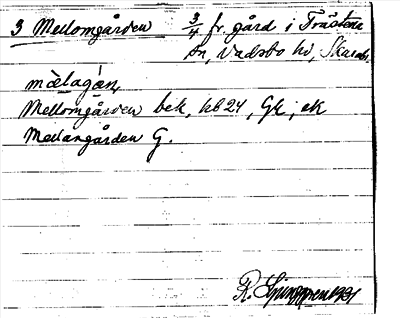 3 Mellomgården 3/4 fr. gård i Trästena
sn, Vadsbo hd, Skarab.
mèlagá̀n,
Mellomgården bek, hb 24, Gk, ek
Mellangården G.
R. Ljunggren 1931